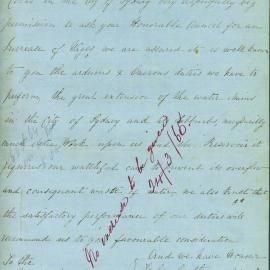 permission to ask your Honorable Council for an
Increase of Wages we are assured it is well known
to you the arduous & Onerous duties we have to
perform, the great extension of the water mains
in the City of Sydney and Suburbs,
much extra Work upon us and the Reservoir it
requires our watchful care to prevent its overflow
and consequent waste of water, we also trust that
the satisfactory performance of our duties will
recommend us to your favourable consideration
To the And we have Honour
No increase to be given